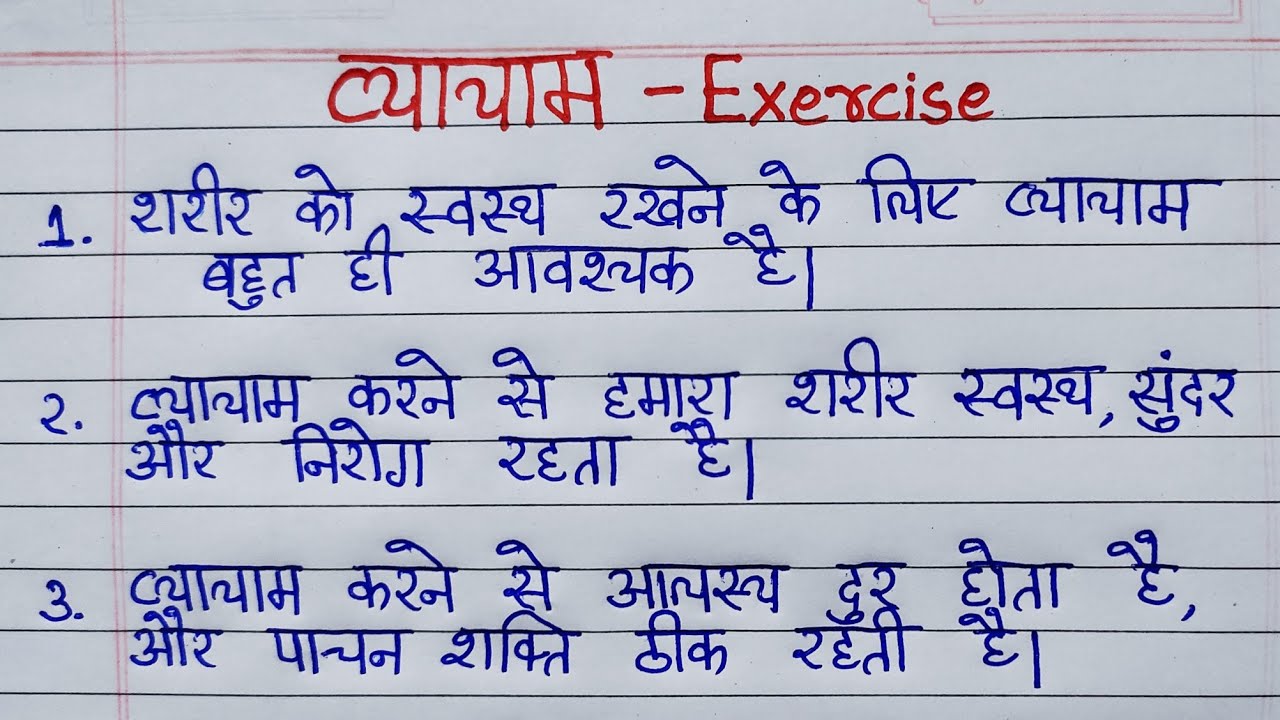 व्यायाम - Exercise
1. शरीर को स्वस्थ रखने के लिए व्यायाम
बहुत ही आवश्यक है।
२. व्यायाम करने से हमारा शरीर स्वस्थ, सुंदर
और निरोग रहता है।
३. व्यायाम करने से आलस्य दुर होता है,
और पाचन शक्ति ठीक रहती है।